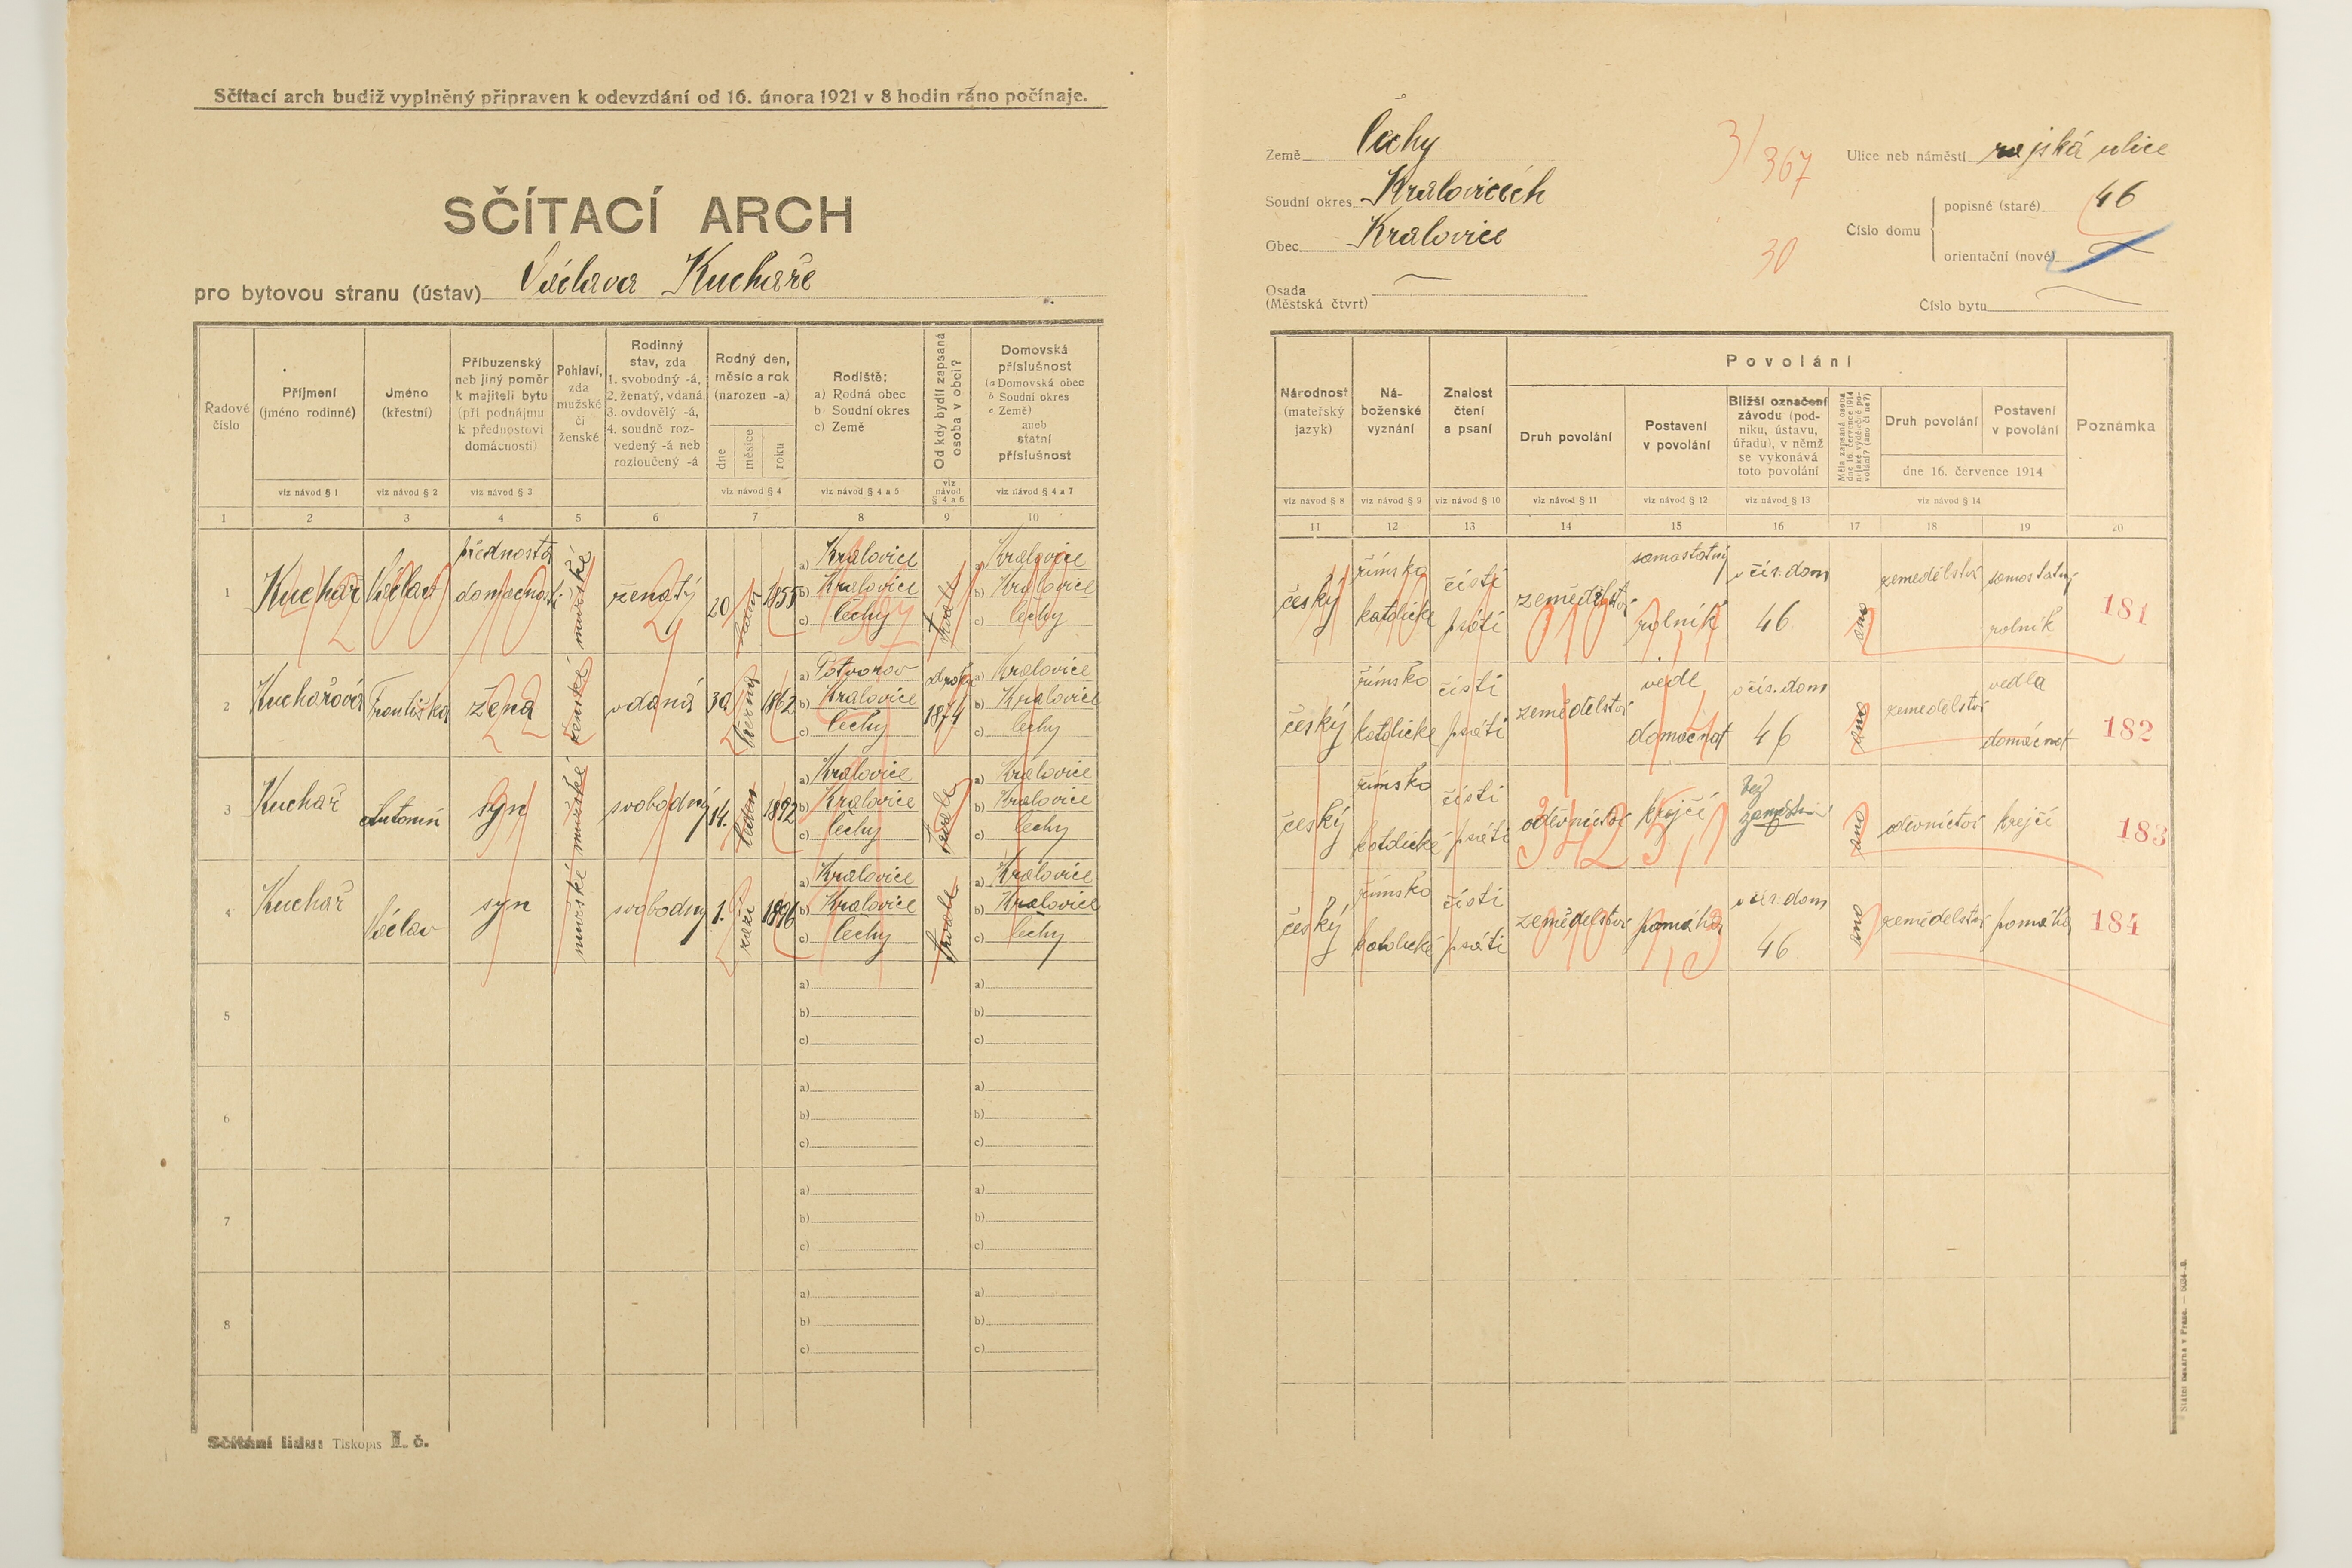 Sčítací arch budiž vyplněný připraven k odevzdání od 16. února 1921 v 8 hodin ráno počínaje.
SČÍTACÍ ARCH
pro bytovou stranu (ústav) Václava Kuchaře
Země Čechy
Soudní okres Kralovicích
Obec Kralovice
Osada
(Městská čtvrt)
3/367
30
Ulice neb náměstí rajská ulice
Číslo domu
popisné (staré) 46
orientační (nové)
Číslo bytu
Řadové číslo
Příjmení (jméno rodinné)
Jméno (křestní)
Příbuzenský neb jiný poměr k majiteli bytu (při podnájmu k přednostovi domácnosti)
Pohlaví, zda mužské či ženské
Rodinný stav, zda 1. svobodný -á, 2. ženatý, vdaná, 3. ovdovělý -á, 4. soudně rozvedený -á neb rozloučený -á
Rodný den, měsíc a rok (narozen -a)
dne měsíce roku
Rodiště: a) Rodná obec b) Soudní okres c) Země
Od kdy bydlí zapsaná osoba v obci?
Domovská příslušnost (a Domovská obec b Soudní okres c Země) aneb státní příslušnost
viz návod § 1 viz návod § 2 viz návod § 3 viz návod § 4 viz návod § 4 a 5 viz návod § 4 a 6 viz návod § 4 a 7
1 2 3 4 5 6 7 8 9 10
Národnost (mateřský jazyk)
Náboženské vyznání
Znalost čtení a psaní
Povolání
Druh povolání
Postavení v povolání
Bližší označení závodu (podniku, ústavu, úřadu), v němž se vykonává toto povolání
Měla zapsaná osoba dne 16. července 1914 nějaké výdělečné povolání? (ano či ne?)
Druh povolání
Postavení v povolání
dne 16. července 1914
Poznámka
viz návod § 8 viz návod § 9 viz návod § 10 viz návod § 11 viz návod § 12 viz návod § 13 viz návod § 14
11 12 13 14 15 16 17 18 19 20
1 Kuchař Václav přednosta domácnosti mužské ženatý 20 1855 a) Kralovice b) Kralovice c) Čechy a) Kralovice b) Kralovice c) Čechy
český římsko katolické čísti psáti zemědělství samostatný rolník v čís. dom 46 ano zemědělství samostatný rolník 181
2 Kuchařová Františka žena ženské vdaná 30 1862 a) Potvorov b) Kralovice c) Čechy 1874 a) Kralovice b) Kralovice c) Čechy
český římsko katolické čísti psáti zemědělství vede domácnost v čís. dom 46 ano zemědělství vedla domácnost 182
3 Kuchař Antonín syn mužské svobodný 14. leden 1892 a) Kralovice b) Kralovice c) Čechy a) Kralovice b) Kralovice c) Čechy
český římsko katolické čísti psáti oděvnictví krejčí bez zaměstnání ano oděvnictví krejčí 183
4 Kuchař Václav syn mužské svobodný 1. září 1896 a) Kralovice b) Kralovice c) Čechy a) Kralovice b) Kralovice c) Čechy
český římsko katolické čísti psáti zemědělství pomáhá v čís. dom 46 ano zemědělství pomáhá 184
5 a) b) c) a) b) c)
6 a) b) c) a) b) c)
7 a) b) c) a) b) c)
8 a) b) c) a) b) c)
Sčítání lidu: Tiskopis I. č.
Státní tiskárna v Praze.